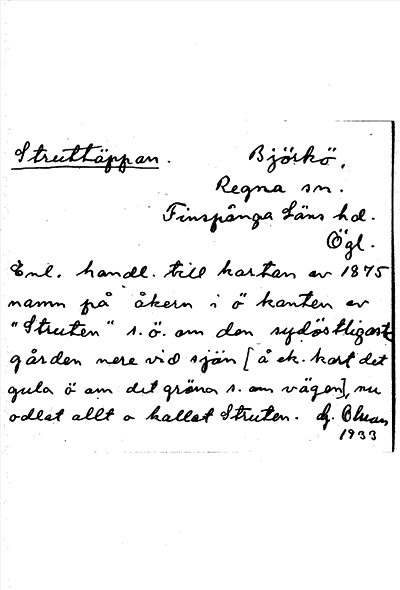 Struttäppan. Björkö,
Regna sn.
Finspånga Läns hd.
Ögl.
Enl. handl. till kartan av 1875
namn på åkern i ö kanten av
"Struten" s.ö. om den sydöstligaste
gården nere vid sjön [å ek. kart det
gula ö om det gröna s. om vägen], nu
odlat allt o kallat Struten.
1933